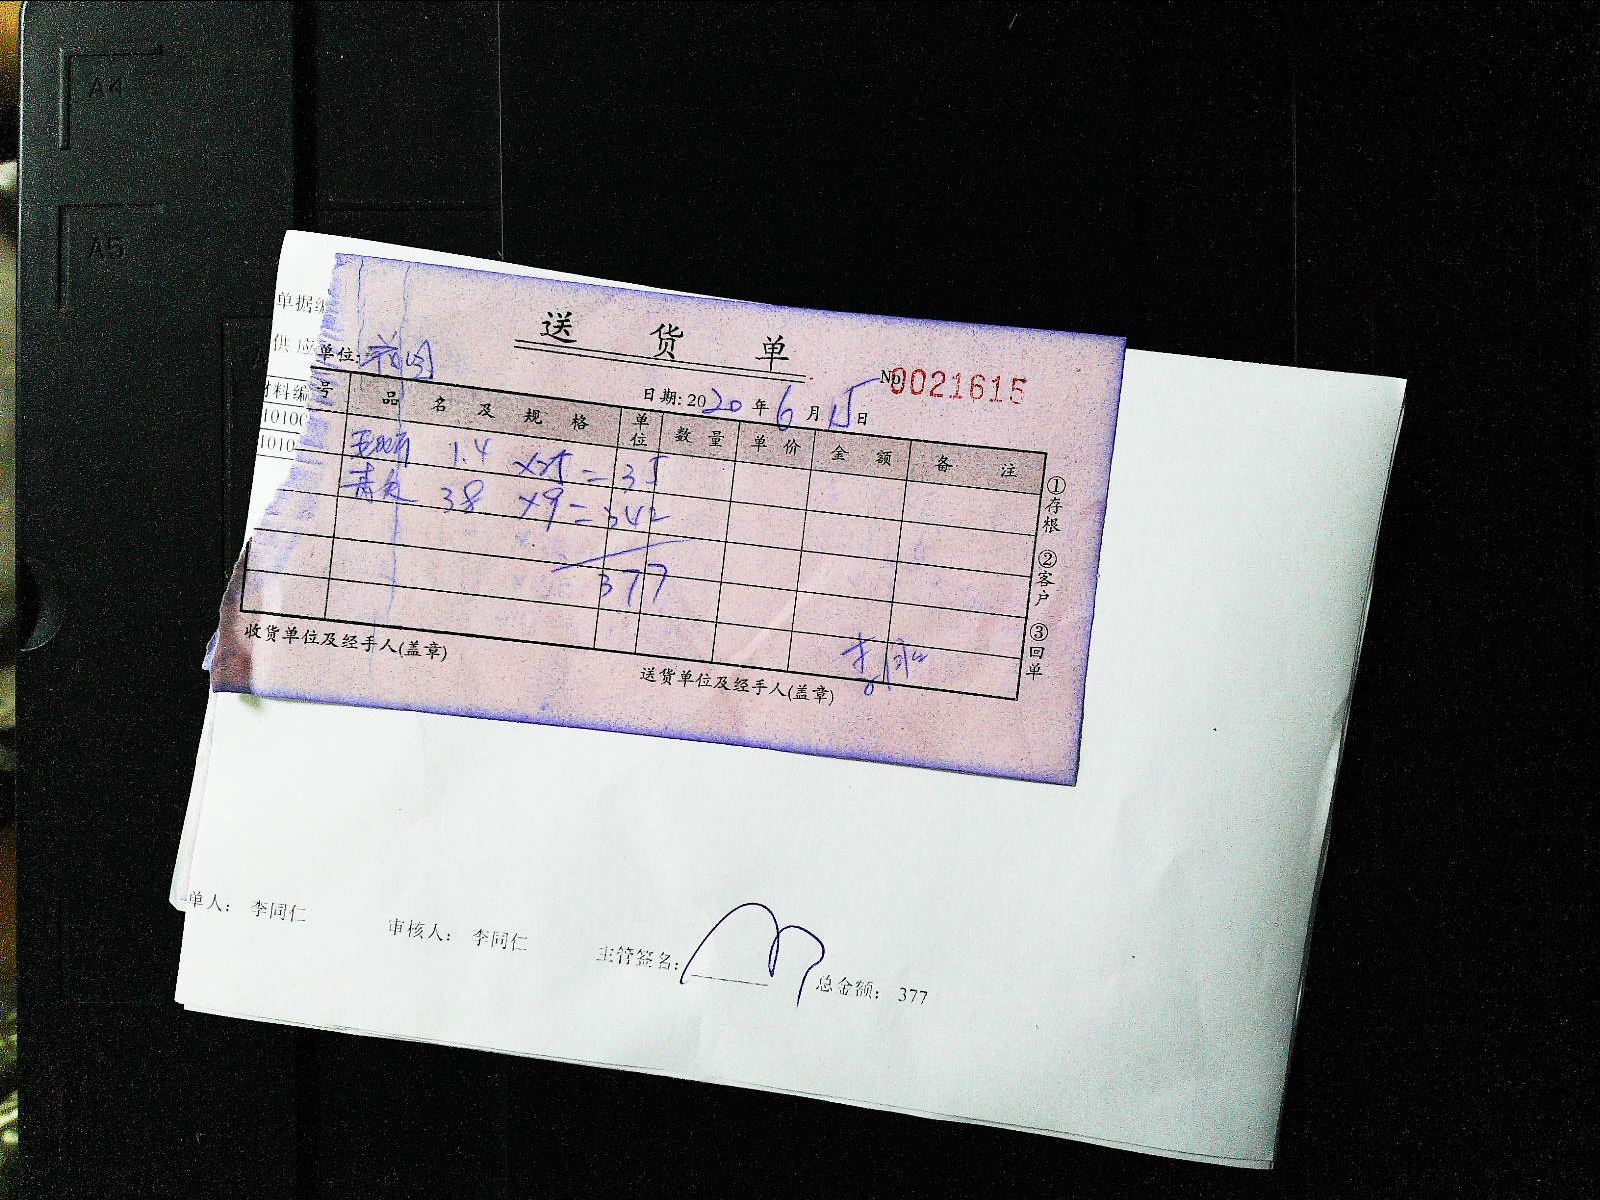 A4
A5
单据编
供应
材料编
10100
1010
送 货 单
单位:
№0021615
日期: 2020 年 6 月 15 日
号 品 名 及 规 格 单位 数 量 单 价 金 额 备 注
1.4 ×25 = 35
38 ×9 = 342
377
①存根 ②客户 ③回单
收货单位及经手人(盖章)
送货单位及经手人(盖章)
单人: 李同仁 审核人: 李同仁 主管签名: 总金额: 377